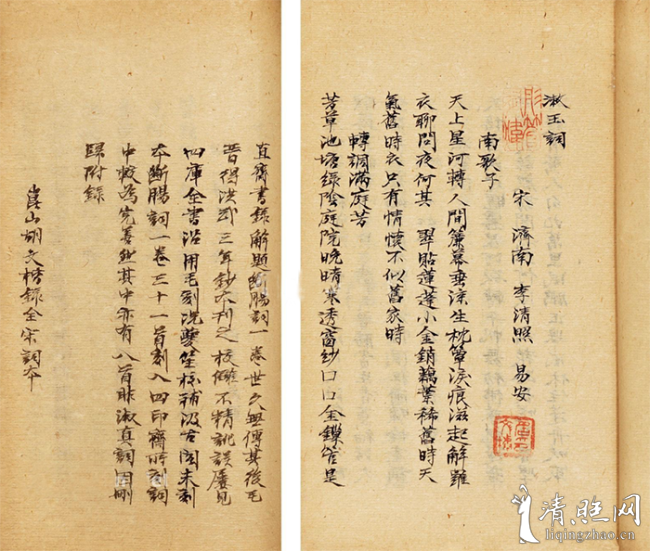 漱玉詞
宋 濟南 李清照 易安
南歌子
天上星河轉人間簾幕垂涼生枕簟淚痕滋起解難
衣聊問夜何其 翠貼蓮蓬小金銷藕葉稀舊時天
氣舊時衣只有情懷不似舊家時
轉調滿庭芳
芳草池塘綠陰庭院晚晴寒透窗紗口口金鏁管是
直齋書錄解題斷腸詞一卷世久無傳其後毛
晉得洪武三年鈔本刊之校讎不精訛誤屢見
四庫全書沿用毛刻況夔笙校補汲古閣未刻
本斷腸詞一卷三十一首刻入四印齋所刻詞
中較為完善然其中亦有八首非淑真詞因刪
歸附錄
崑山胡文楷錄全宋詞本
清照网
liqingzhao.cn